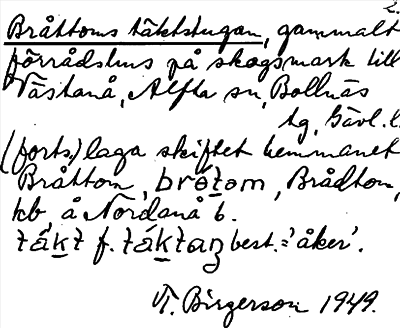 2.
Bråttoms täktstugan, gammalt
förrådshus på skogsmark till
Västanå, Alfta sn, Bollnäs
tg, Gävl. l.
(forts.) laga skiftet hemmanet
Bråttom, brótom, Brådtom,
kb å Nordanå 6.
tákt f. táktaŋ best. = 'åker'.
VT. Birgerson 1949.